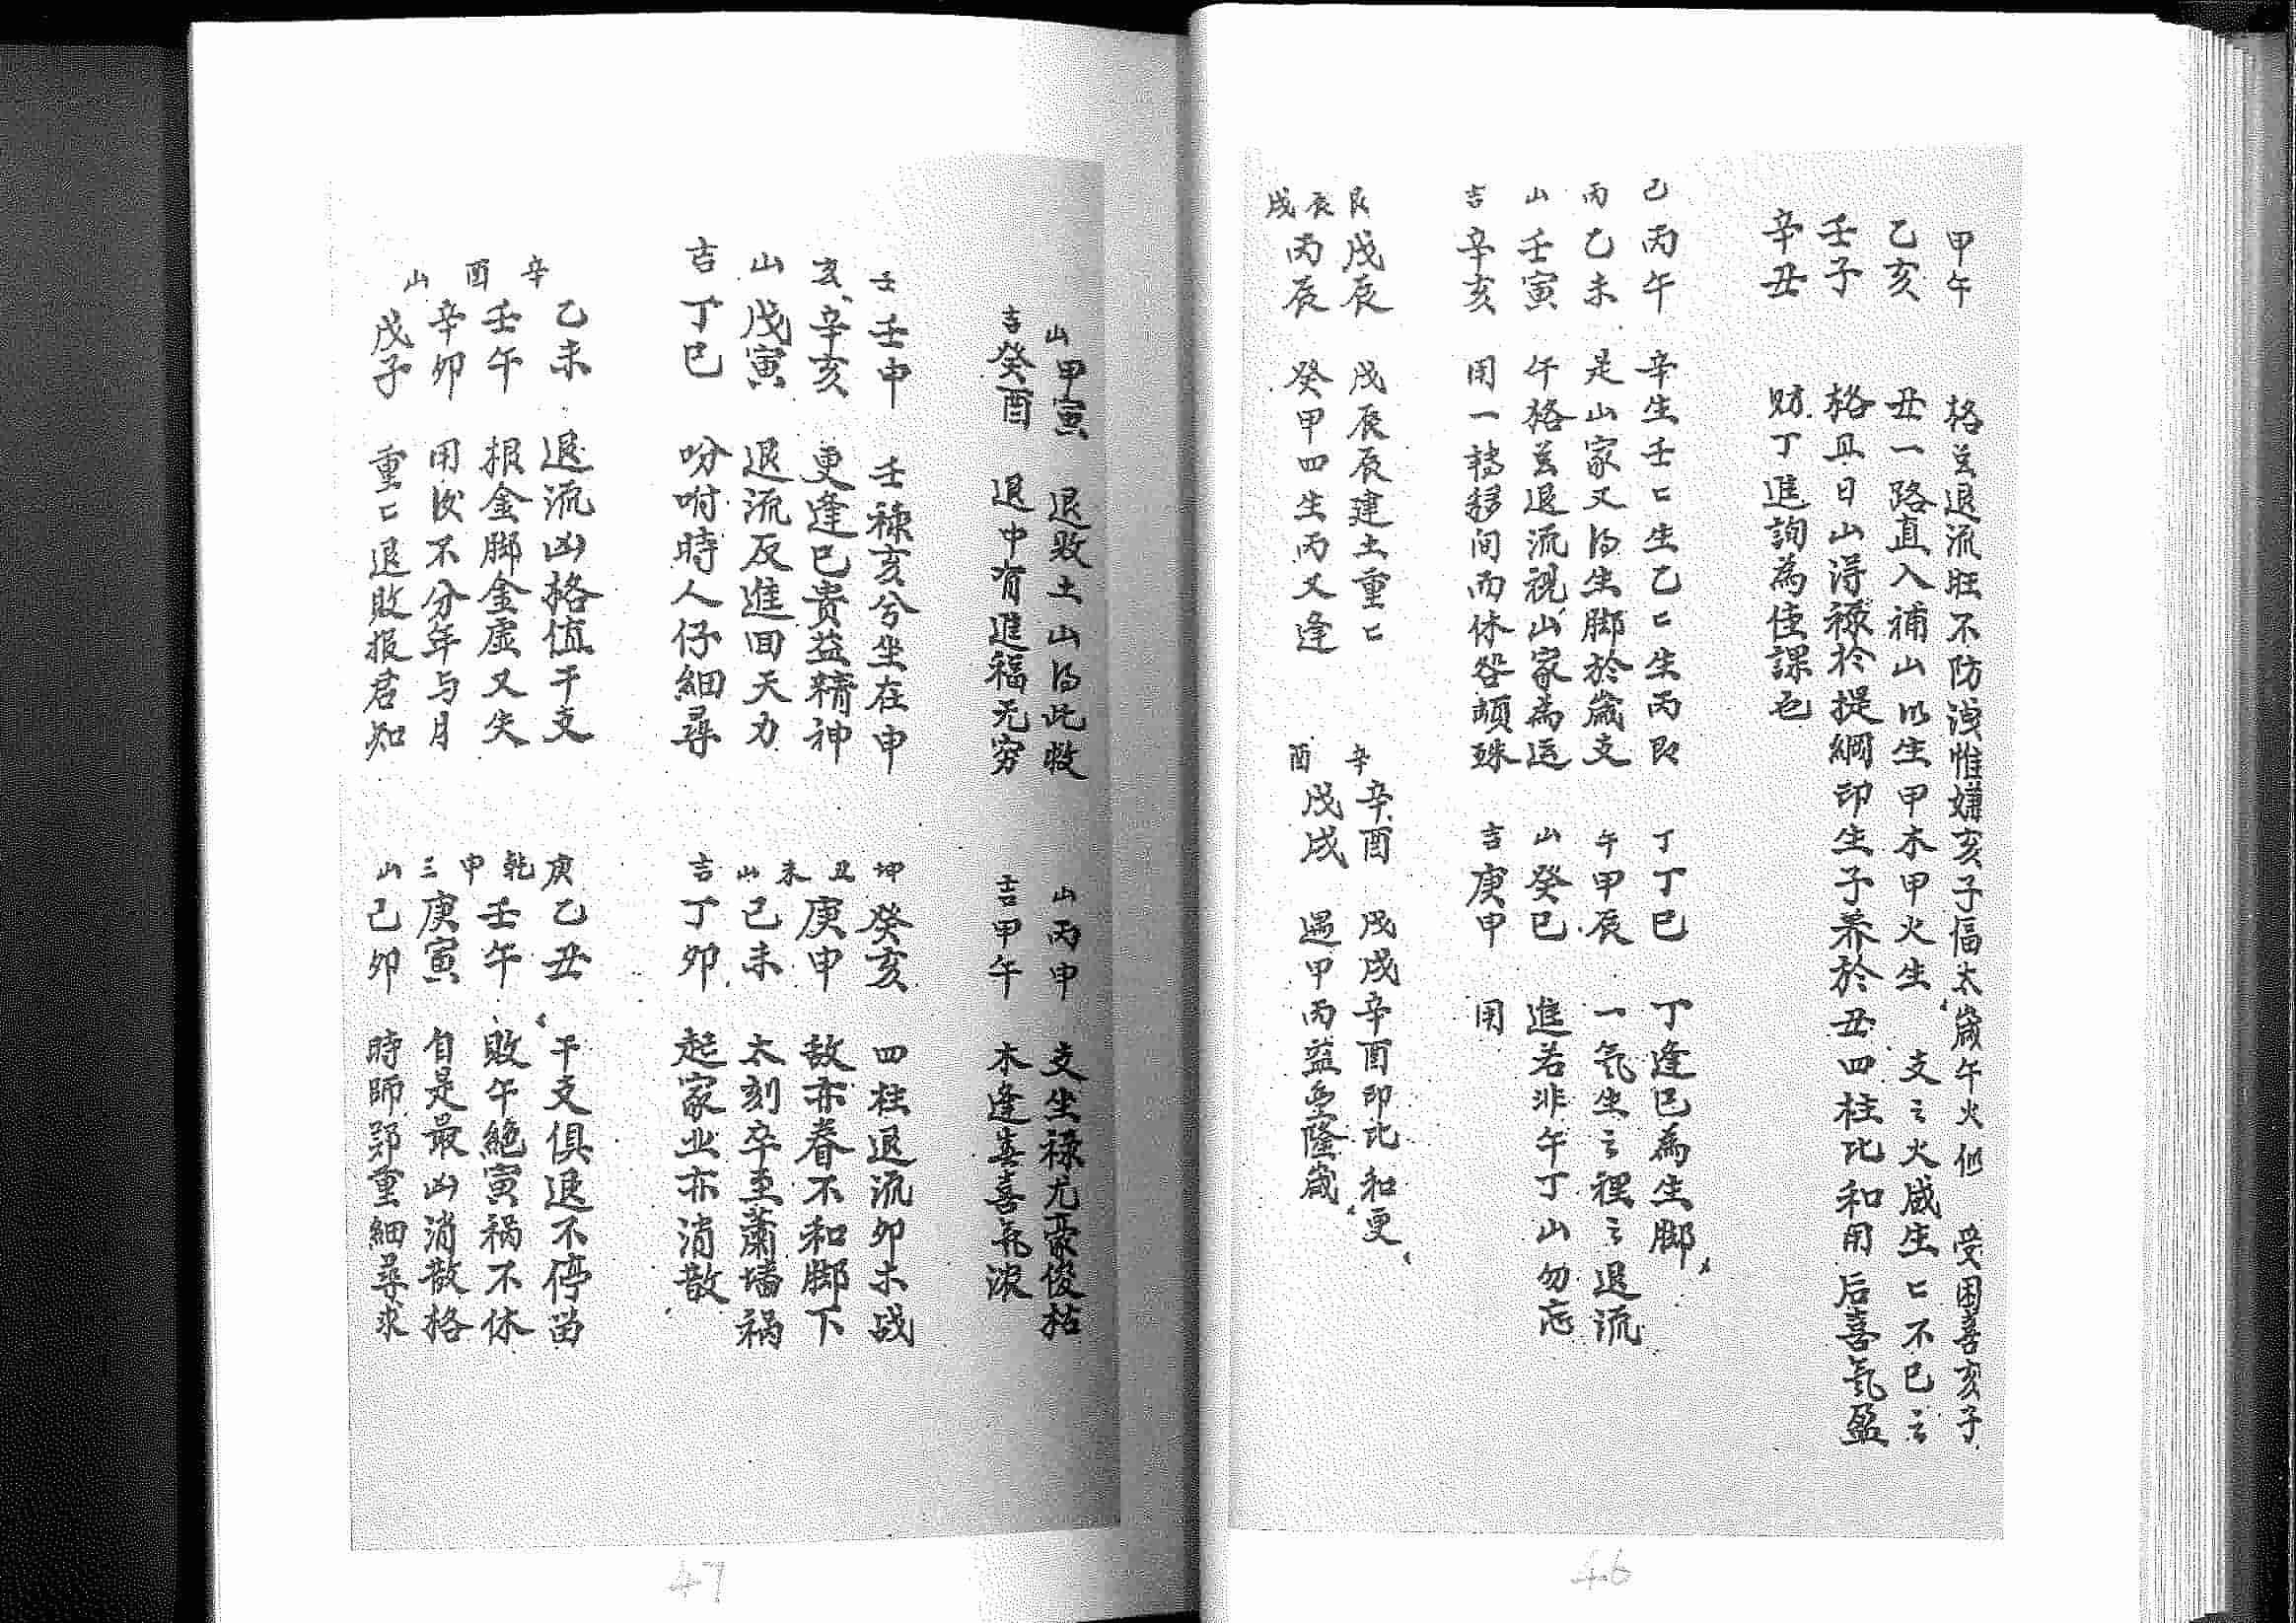 甲午 格並退流旺不防洩惟嫌亥子 太歲午火 受困喜亥子
乙亥 丑一路直入補山以生甲木甲火生 支之火 生匕不已云
壬子 格且日山得祿於提綱印生子養於丑四柱比和用后喜氣盈
辛丑 財丁進詢為佳課也
己丙午 辛生壬匕生乙匕生丙即
丙乙未 是山家又得生脚於歲支
山壬寅 午格並退流視山家為运
吉辛亥 用一轉移间而休咎頓殊
丁丁巳 丁逢巳為生脚
午甲辰 一気生之裡之退流
山癸巳 進若非午丁山勿忘
吉庚申 用
艮戊辰 戊辰辰建土重匕
辰戌丙辰 癸甲四生丙又逢
辛辛酉 戊戌辛酉印比和更
酉戊戌 遇甲丙益 隆歲
山甲寅 退败土山得此败
吉癸酉 退中有進福无穷
山丙申 支坐祿尤豪俊
吉甲午 木逢 喜 浓
壬壬申 壬祿亥兮坐在申
亥辛亥 更逢巳贵益精神
山戊寅 退流反進回天力
吉丁巳 吩咐時人仔細尋
坤癸亥 四柱退流卯未战
丑庚申 敌亦眷不和脚下
未山己未 太刻卒至蕭墻祸
吉丁卯 起家业亦消散
辛乙未 退流凶格值干支
酉壬午 报金脚金虚又失
山辛卯 用後不分年与月
戊子 重匕退敗报君知
庚乙丑 干支俱退不停留
乾壬午 敗午絶寅祸不休
申三庚寅 自是最凶消散格
山己卯 時師郑重細尋求
47
46